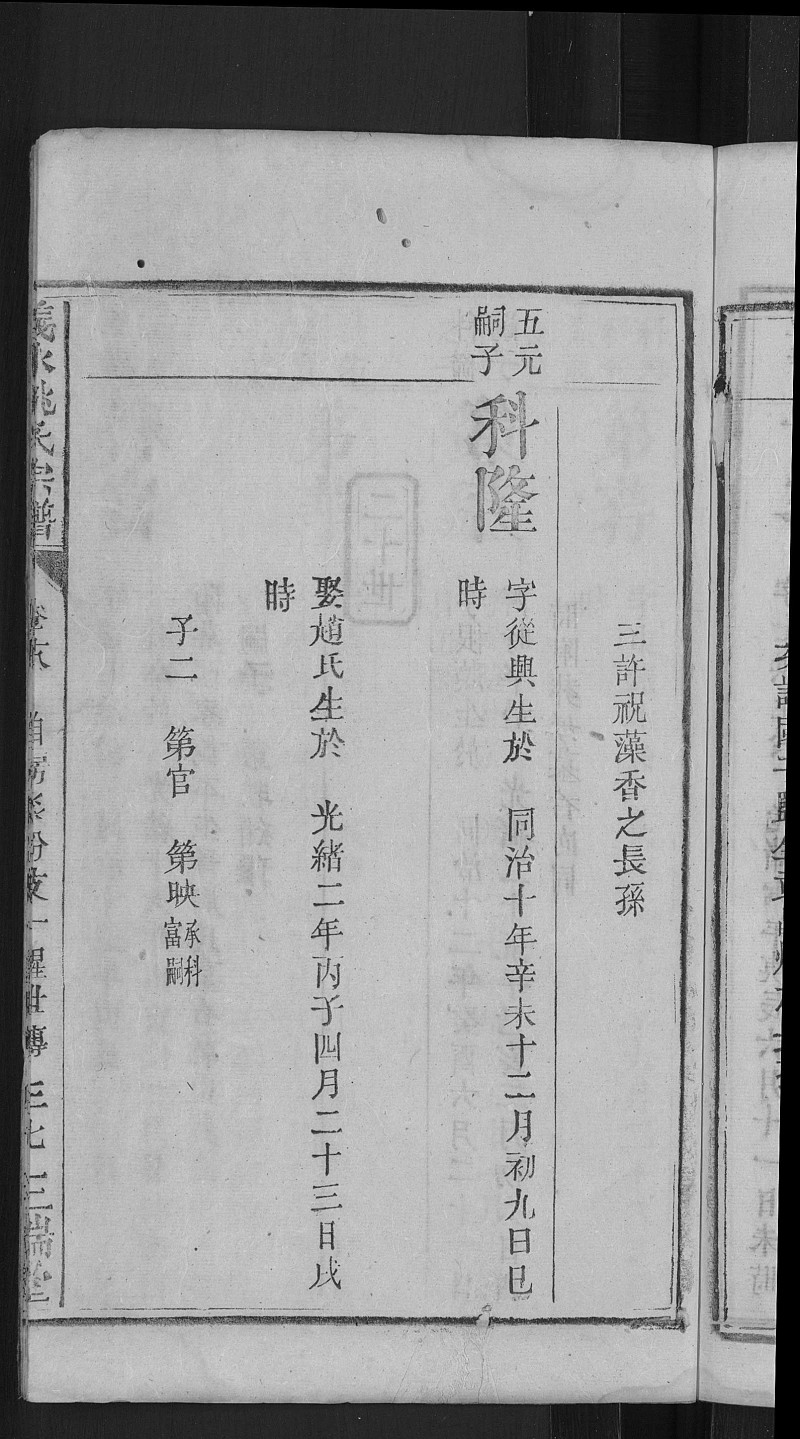 三許祝藻香之長孫
五元
嗣子
科隆
字從興生於 同治十年辛未十二月初九日巳
時
娶趙氏生於 光緒二年丙子四月二十三日戌
時
子二 第官 第映承科
富嗣
二十世
義水姚氏宗譜
三瑞堂